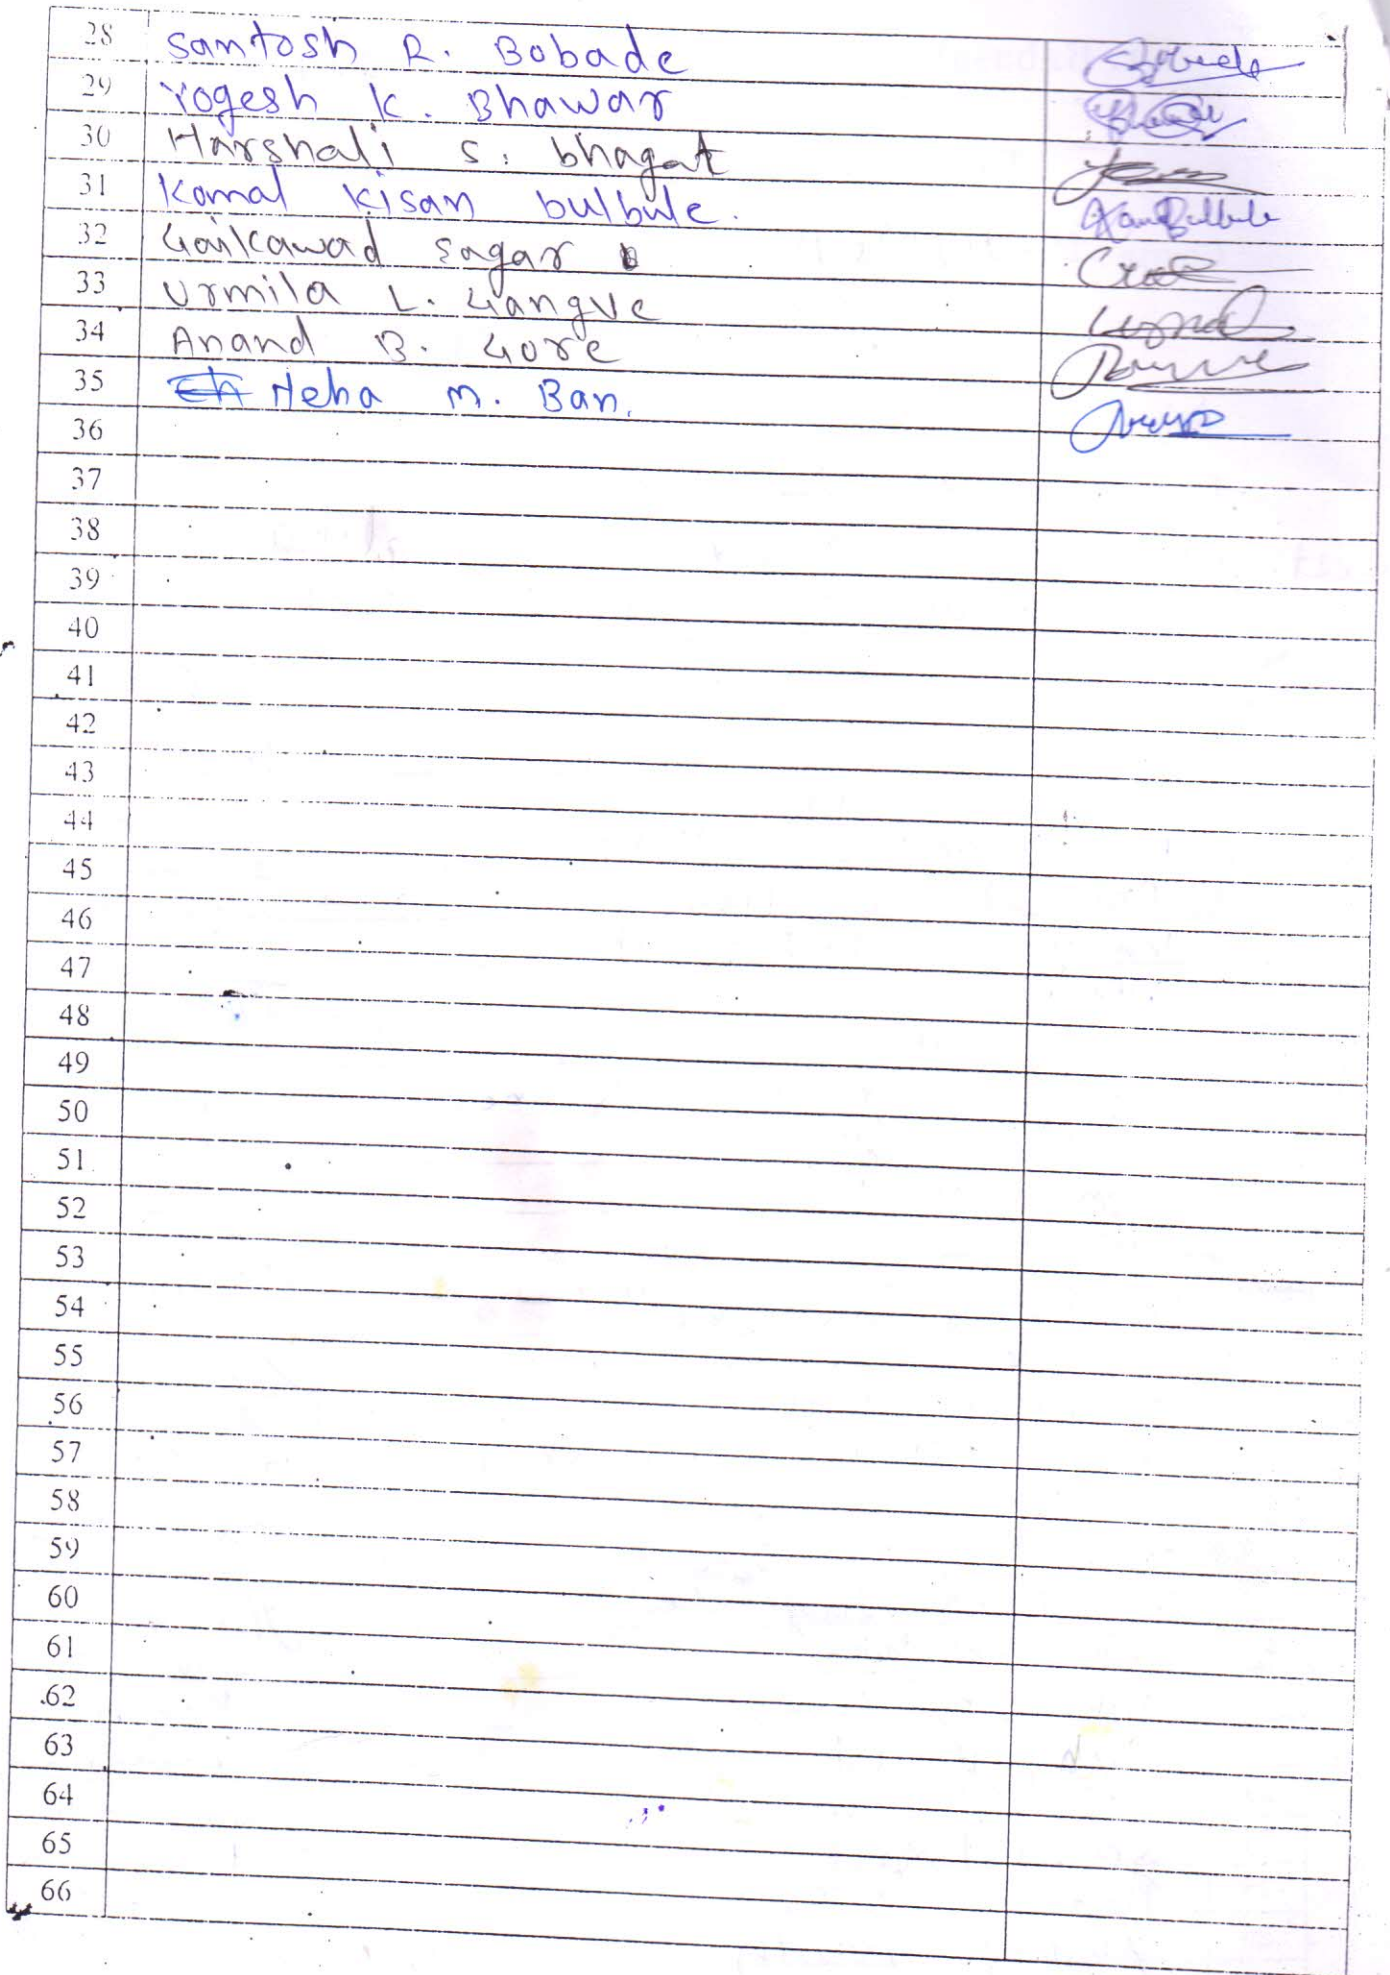 28 Santosh R. Bobade
29 Yogesh K. Bhawar
30 Harshali S. bhagat
31 Komal kisan bulbule.
32 Gaikawad Sagar
33 Urmila L. Gangve
34 Anand B. Gore
35 Neha M. Ban.
36
37
38
39
40
41
42
43
44
45
46
47
48
49
50
51
52
53
54
55
56
57
58
59
60
61
62
63
64
65
66